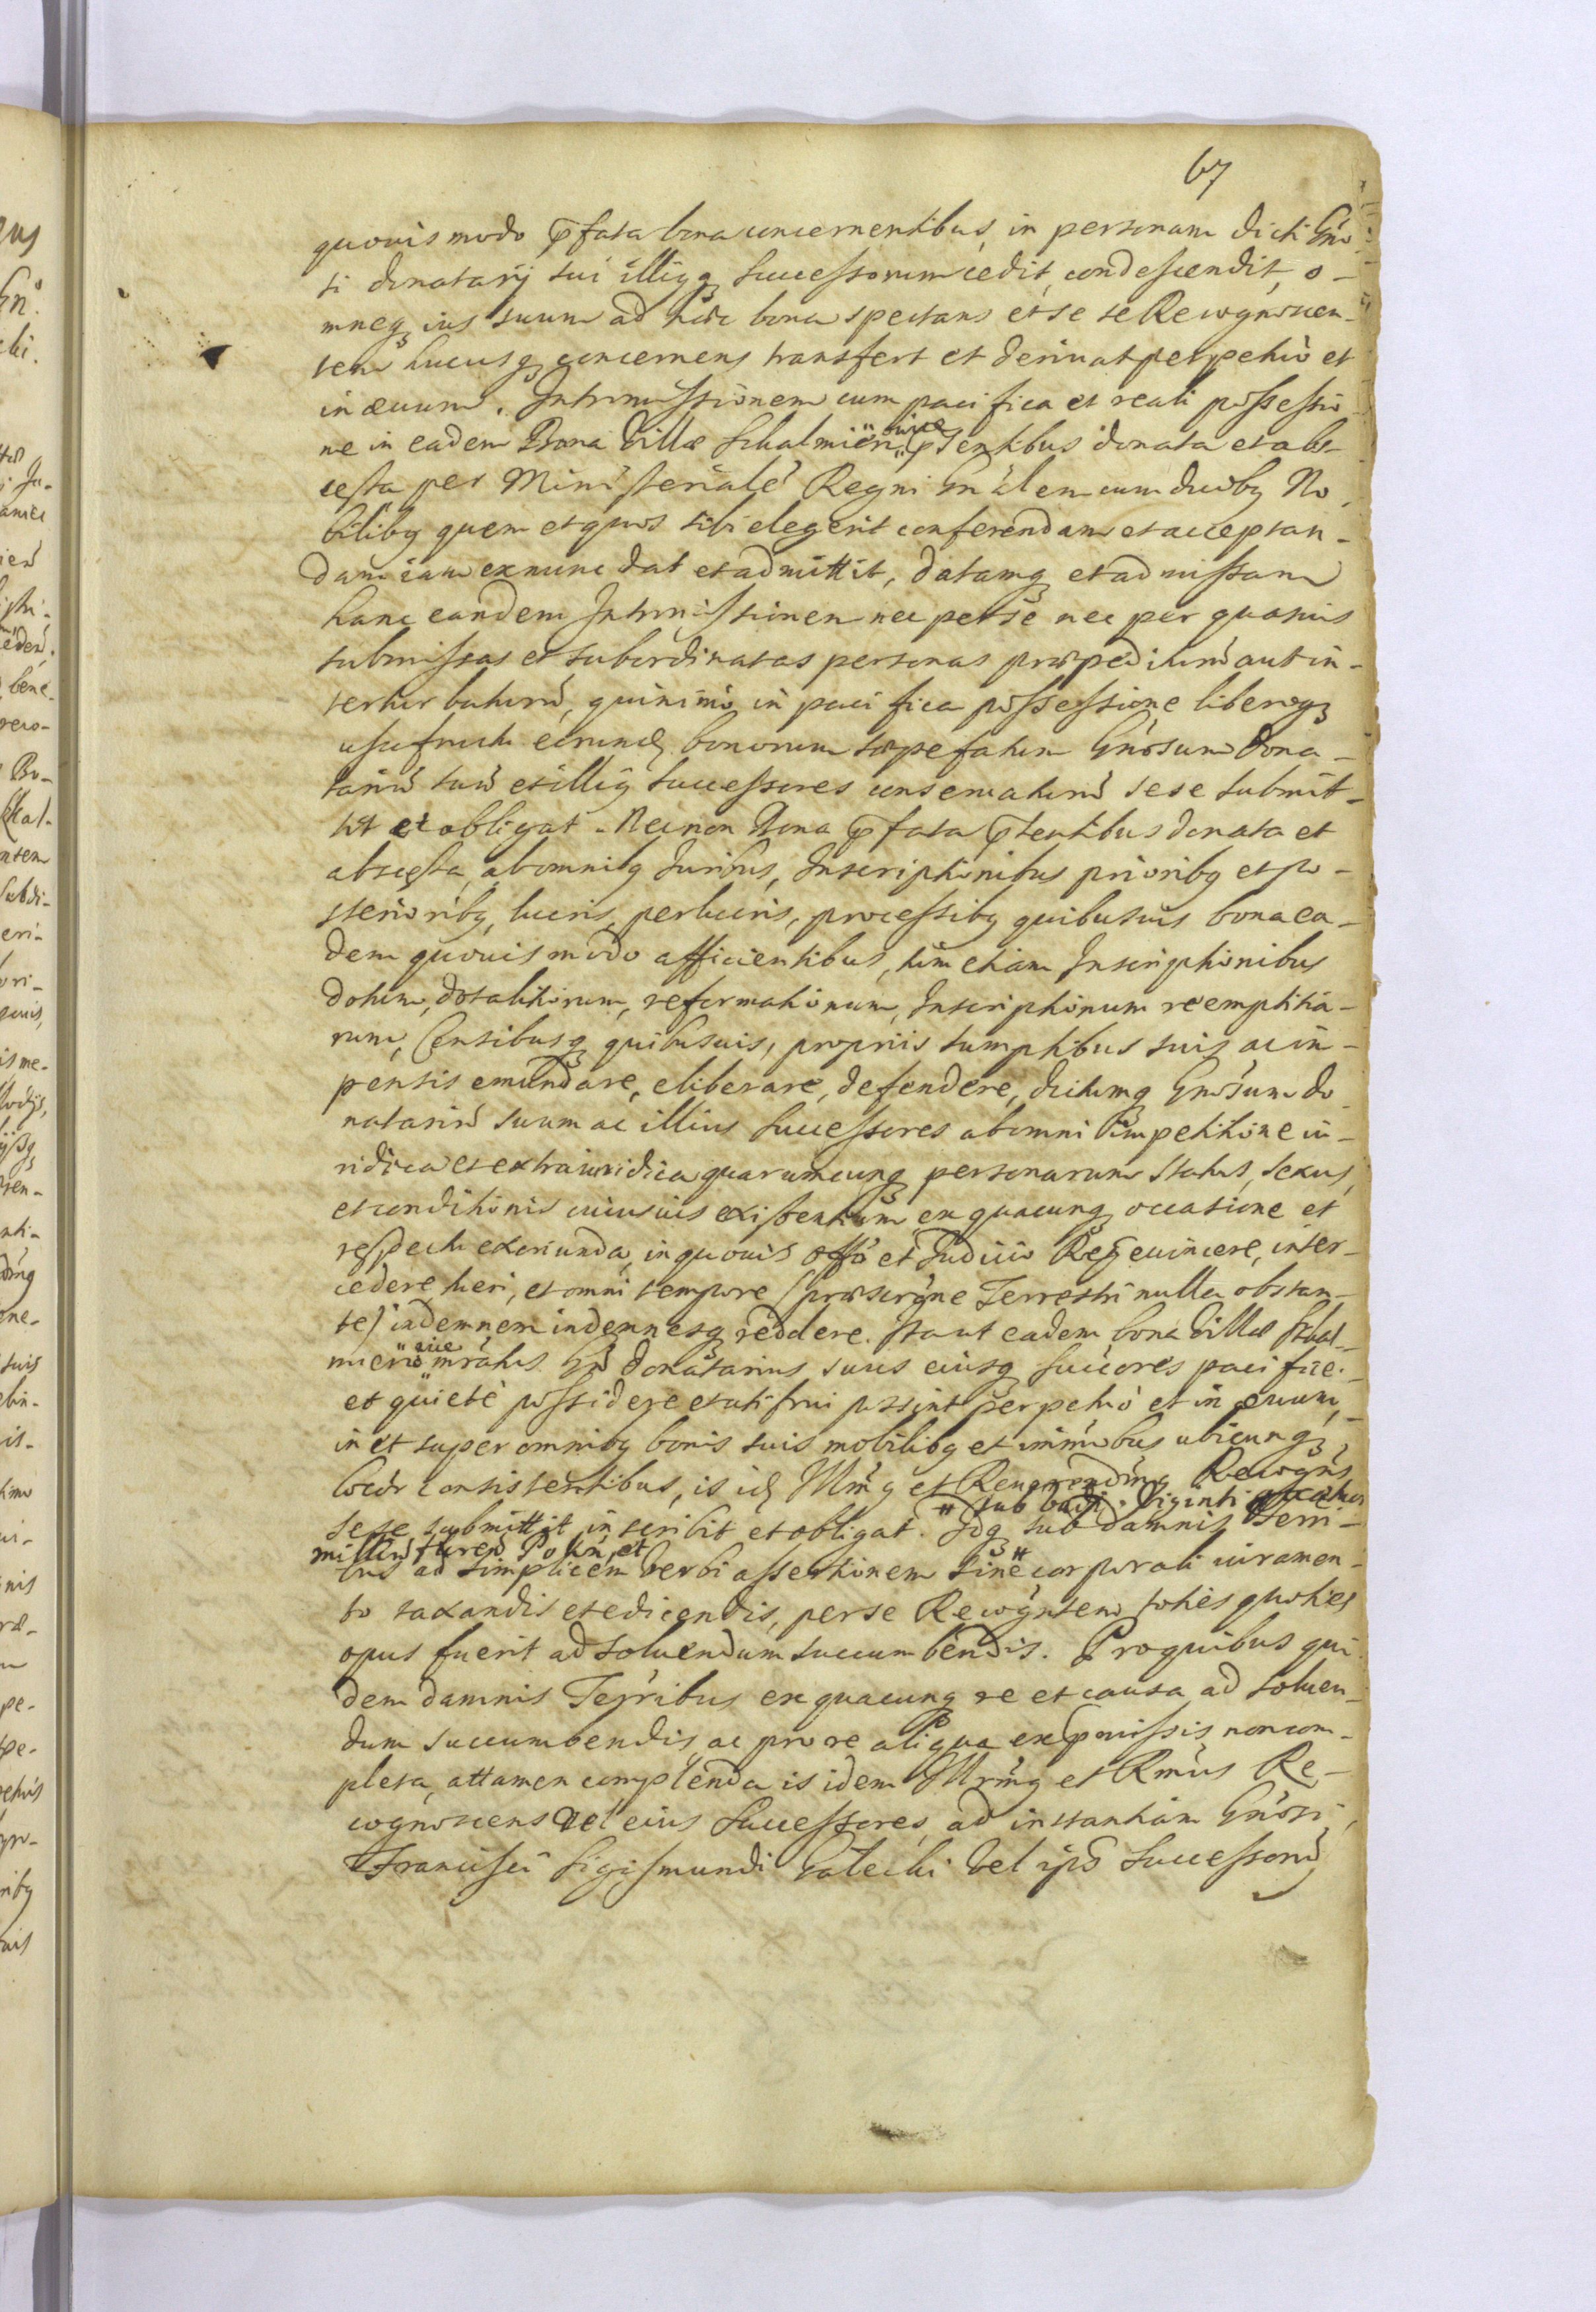 67
quouis modo p̄fata bona concernentibus, in personam dicti Gńo-
si donatarij sui illiq̨ Successorum cedit, condescendit, o-
mneq̨ ius suum ad haec bona spectans et se se Recognoscen-
tem hucusq̨ concernens transfert et deriuat perpetuò et
in aeuum. Intromissionem cum pacifica et reali possessio-
ne in eadem Bona Villae Schalmieri p̄sentibus donata et abs-
cessa per Ministerialé Regni Gńálem cum duobq No-
bilibq quem et quos sibi elegerit conferendam et acceptan-
dam iam ex nunc dat et admittit, datamq̨ et admissam
hanc eandem Intromissionem nec per se nec per quasuis
submissas et subordinatas personas praepediturū aut in-
terturbaturū, quinimò in pacifica possessione liberoq̨
usufructu eorund bonorum saepefatum Gńosum Dona-
tariū suū et illiq Successores conseruaturū sese submit-
tit et obligat. Nec non Bona p̄fata p̄sentibus donata et
abscessa, ab omnibq Iuribus, Inscriptionibus prioribq et po-
sterioribq, lucris, perlucris, processibq quibusuis bona ea-
dem quouis modo afficientibus, tùm etiam Inscriptionibus
dotium, dotalitiorum, reformationum, Inscriptionum reemptitia-
rum, Censibusq̨ quibusuis, propriis sumptibus suis ac in-
pensis emundare, eliberare, defendere, dictumq̨ Gńosum do-
natariū suum ac illius Successores ab omni impetitione iu-
ridica et extraiuridica quarumcunq̨ personarum status, sexus,
et conditionis cuiusuis existentium ex quacunq̨ occasione et
respectu exoriunda, in quouis Offo et Iudicio Regni euincere, inter-
cedere, tueri, et omni tempore (praescrińe Terrestri nulla obstan-
te) indemnem indemnesq̨ reddere. Ita ut eadem bona Villae Schal-
mierio mrátus Gū donatarius suus eiusq̨ succores pacifice
et quietè possidere et uti frui possint perpetuò et in aeuum,
in et super omnibq bonis suis mobilibq et imm̄obus ubicunq̨
locor consistentibus, is id Mńg et Reuerendiss Recogńs
sese submittit inscribit et obligat. Idq̨ sub damnis Terri-
# sub vadi Viginti quatuor
milliū floren Polon, et
tus ad simplicem verbi assertionem sine corporali iuramen-
to taxandis et edicendis, per se Recogńsem toties quoties
opus fuerit ad soluendum succumbendis. Pro quibus qui-
dem damnis Terribus ex quacunq̨ re et causa ad soluen-
dum succumbendis, ac pro re aliqua ex p̄missis non com-
pleta, attamen complenda is idem Mńg et Rmús Re-
cognoscens vel eius Successores, ad instantiam Gńosi
Francisci Sigismundi Galecki vel ips Successorū